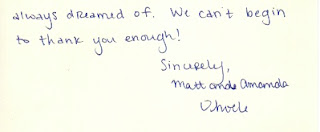 always dreamed of. We can't begin
to thank you enough!
Sincerely,
Matt and Amanda